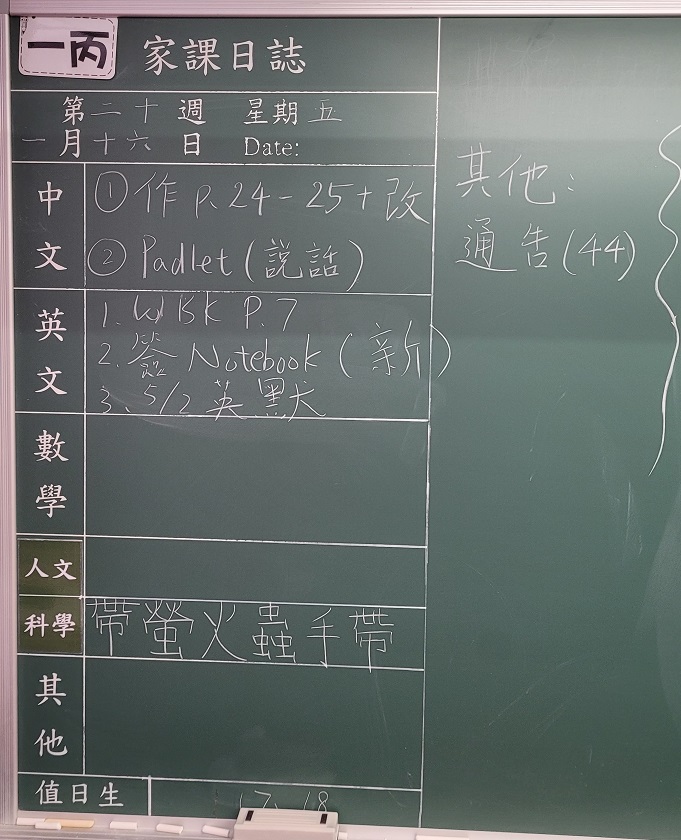 一丙 家課日誌
第二十週 星期五
一月十六日 Date:
中文 ①作 P.24-25+改
②Padlet(説話)
英文 1. WBK P.7
2. 簽 Notebook (新)
3. 5/2 英默
數學
人文
科學 帶螢火蟲手帶
其他
值日生 17、18
其他:
通告(44)